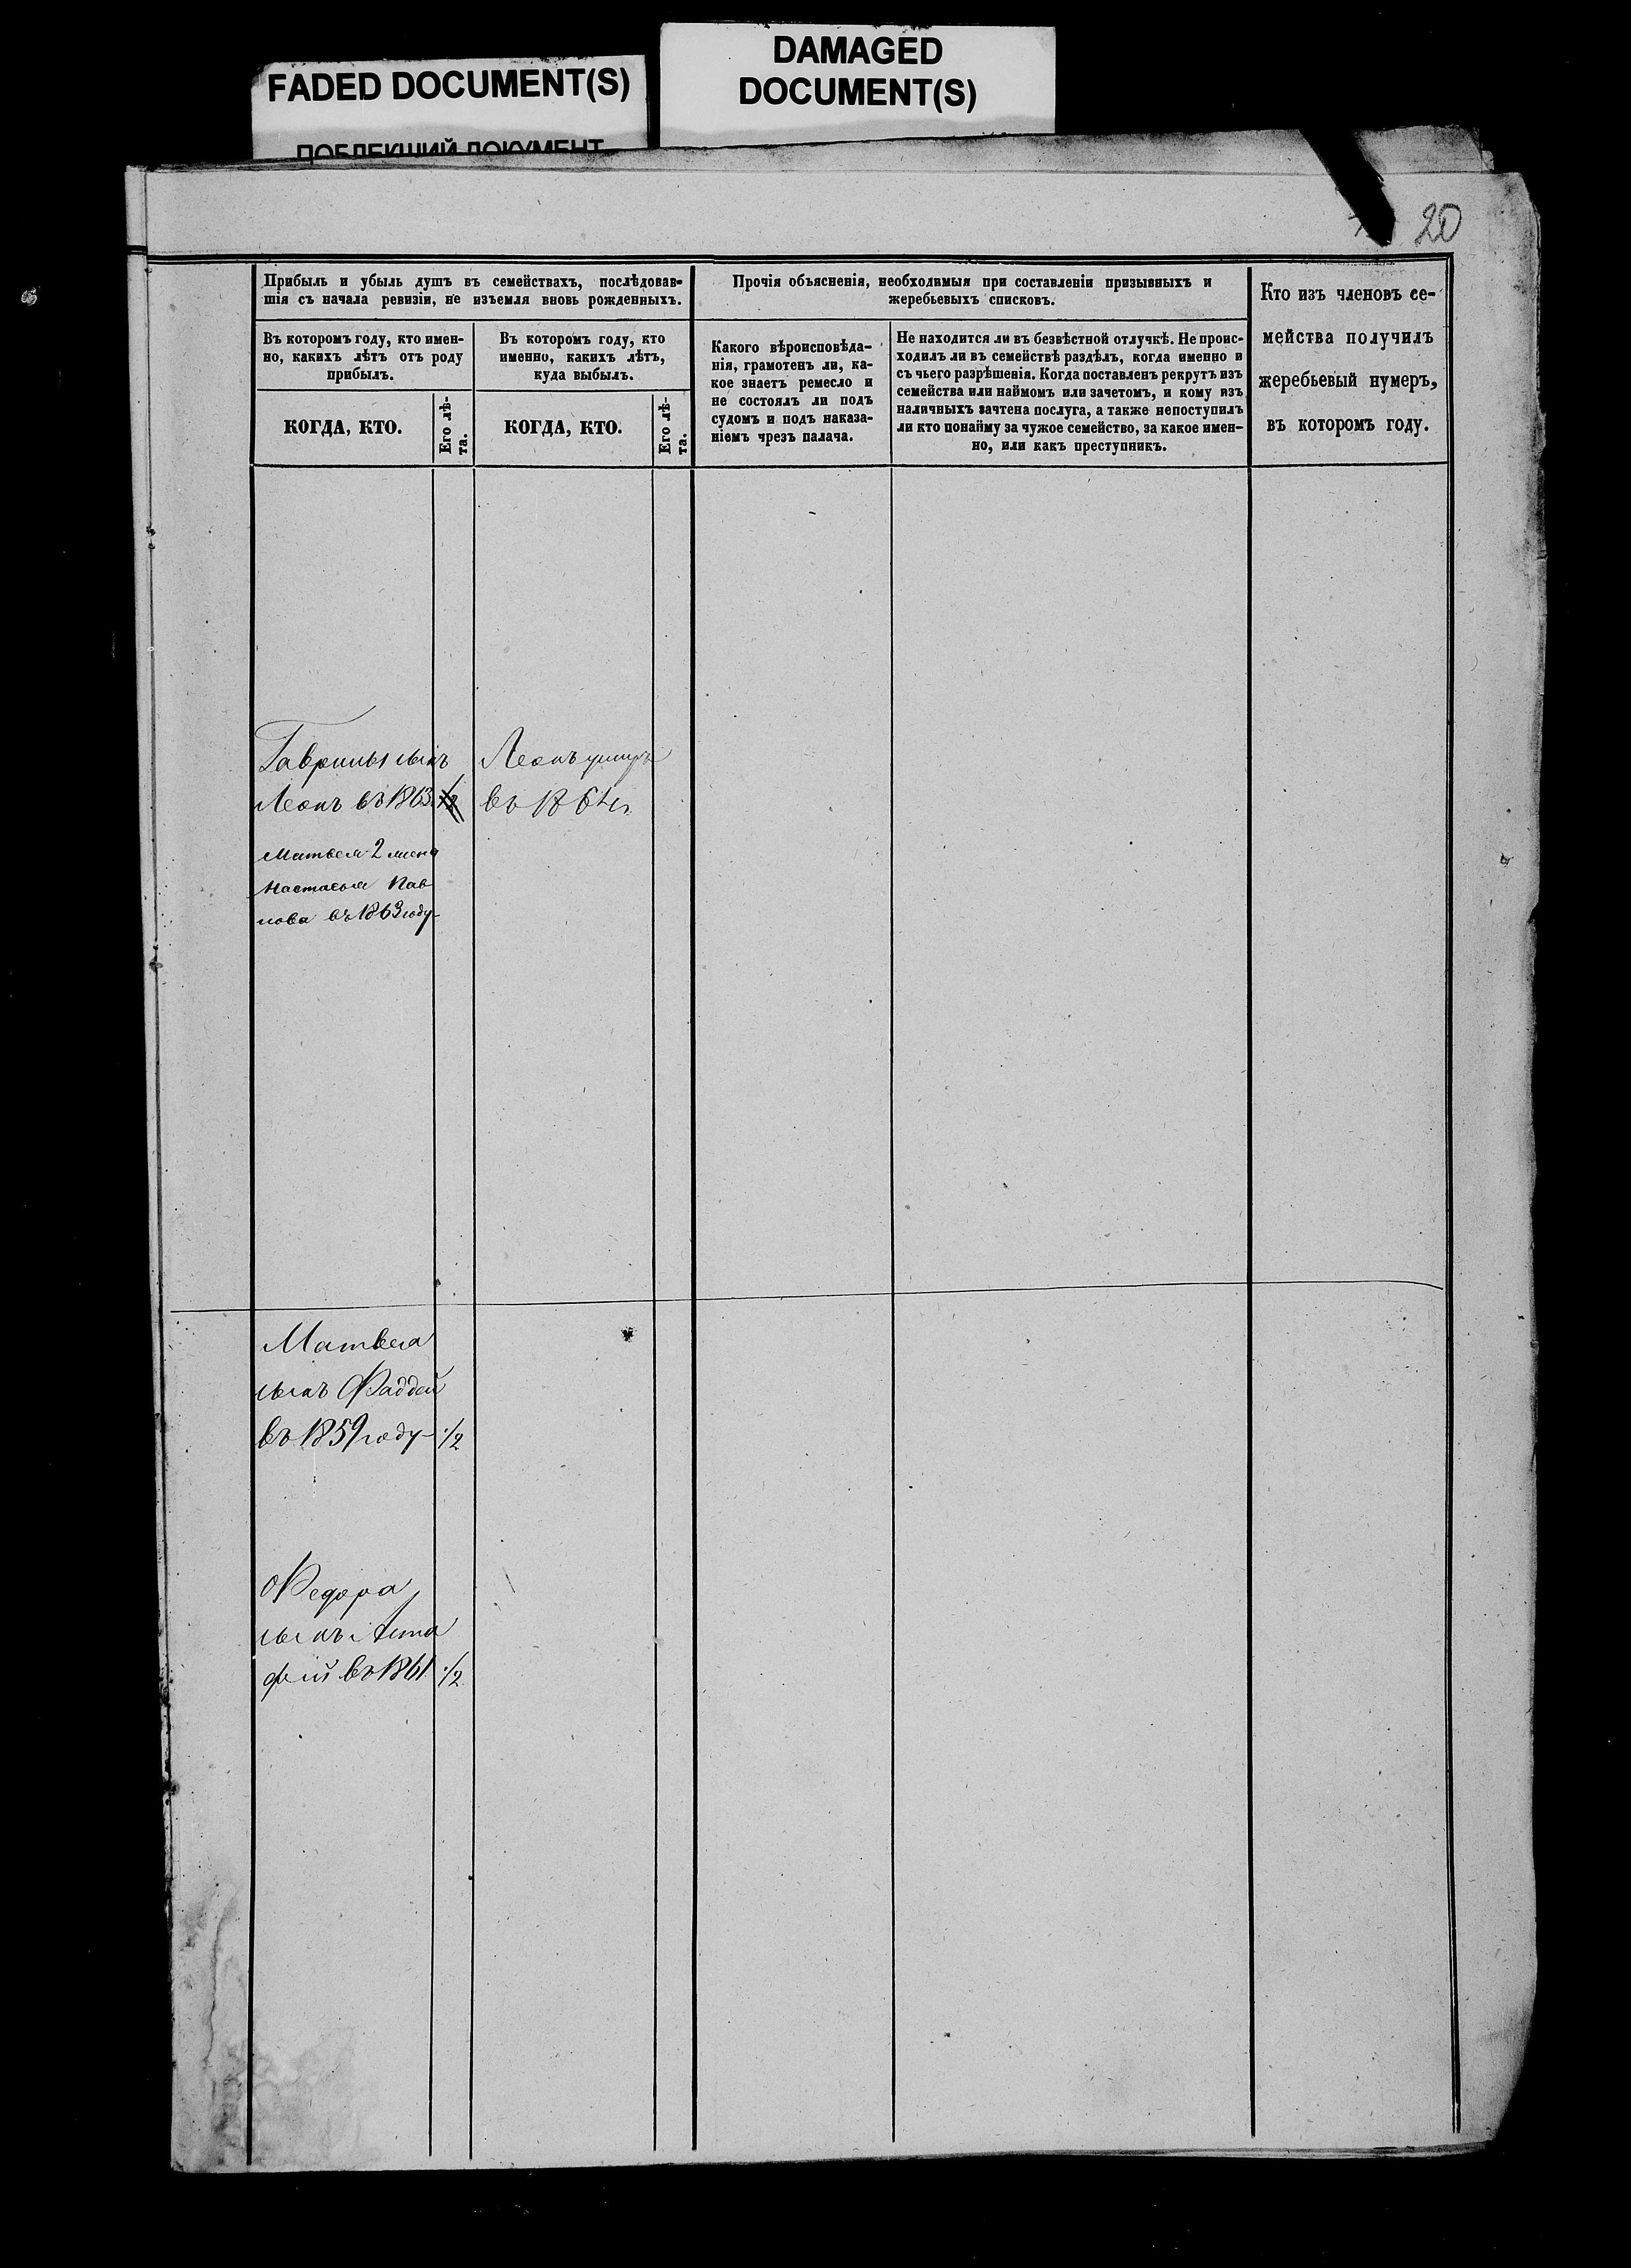 FADED DOCUMENT(S)
DAMAGED
DOCUMENT(S)
ПОБЛЕКШИЙ ДОКУМЕНТ
20
Прибыль и убыль душъ въ семействахъ, послѣдовав-
шія съ начала ревизіи, не изъемля вновь рожденныхъ.
Въ которомъ году, кто имен-
но, какихъ лѣтъ отъ роду
прибылъ.
Въ которомъ году, кто
именно, какихъ лѣтъ,
куда выбылъ.
КОГДА, КТО.
Его лѣ-
та.
КОГДА, КТО.
Его лѣ-
та.
Прочія объясненія, необходимыя при составленіи призывныхъ и
жеребьевыхъ списковъ.
Какого вѣроисповѣда-
нія, грамотенъ ли, ка-
кое знаетъ ремесло и
не состоялъ ли подъ
судомъ и подъ наказа-
ніемъ чрезъ палача.
Не находится ли въ безвѣстной отлучкѣ. Не проис-
ходилъ ли въ семействѣ раздѣлъ, когда именно и
съ чьего разрѣшенія. Когда поставленъ рекрутъ изъ
семейства или наймомъ или зачетомъ, и кому изъ
наличныхъ зачтена послуга, а также непоступилъ
ли кто понайму за чужое семейство, за какое имен-
но, или какъ преступникъ.
Кто изъ членовъ се-
мейства получилъ
жеребьевый нумеръ,
въ которомъ году.
Гаврилы сынъ
Леонъ въ 1863. 1/2
Леонъ умиръ
въ 1864г.
Матвея 2 жена
Настасья Пав
лова въ 1863 году
Матвея
сынъ Фаддей
въ 1859 году 1/2
Федора
сынъ Аста
фій въ 1861 1/2